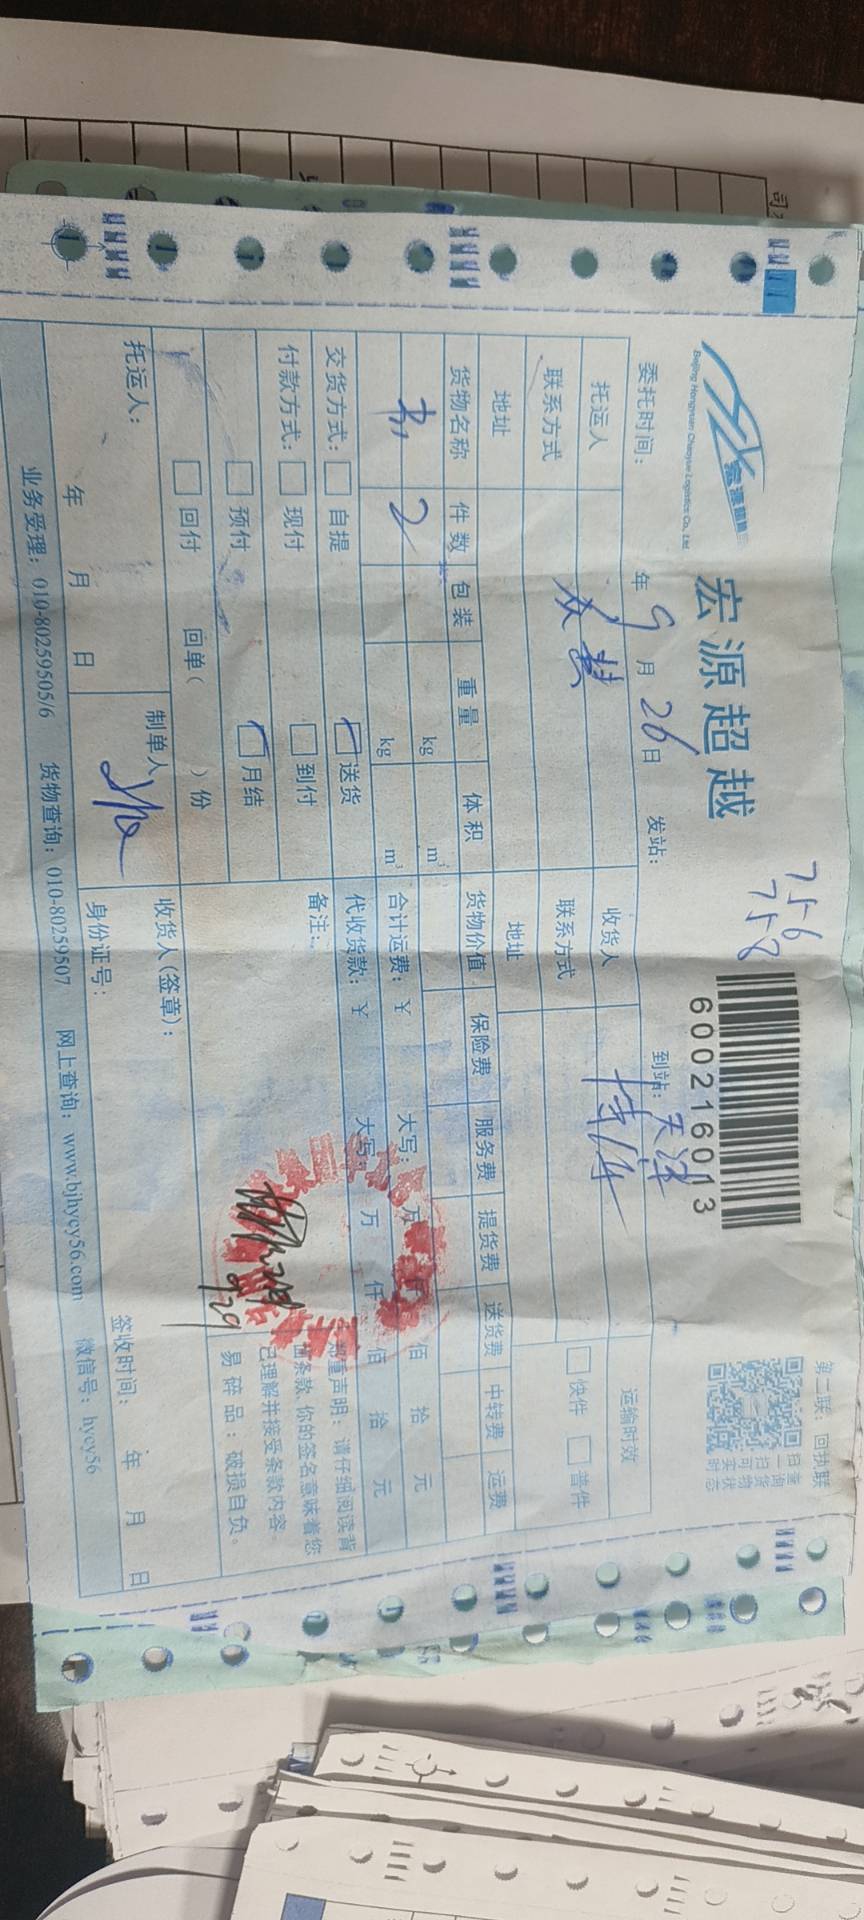 宏源超越
Beijing Hongyuan Chaoyue Logistics Co., Ltd
756
758
600216013
第二联：回执联
扫一扫
可查询货物实时状态
委托时间： 年 9 月 26 日 发站： 到站：天津
托运人 收货人 运输时效
联系方式 联系方式 快件 普件
地址 地址
货物名称 件数 包装 重量 体积 货物价值 保险费 服务费 提货费 送货费 中转费 运费
2 kg m³ 合计运费：￥ 大写： 万 仟 佰 拾 元
kg m³ 代收货款：￥ 大写： 万 仟 佰 拾 元
交货方式： 自提 送货 备注：
付款方式： 现付 到付
预付 月结
回付 回单（ ）份
郑重声明：请仔细阅读背
面条款，你的签名意味着您
已理解并接受条款内容。
易碎品：破损自负。
9/29
托运人： 制单人 收货人（签章）：
年 月 日 身份证号： 签收时间： 年 月 日
业务受理：010-80259505/6 货物查询：010-80259507 网上查询：www.bjhycy56.com 微信号：hycy56